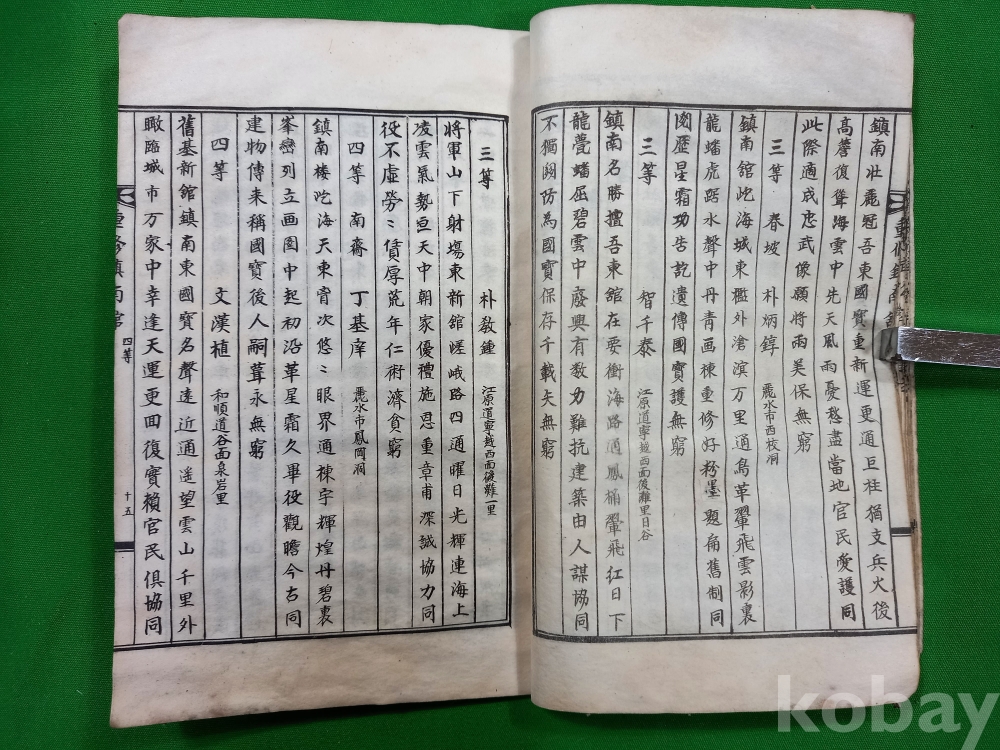 鎮南壯麗冠吾東國寶重新運更通巨柱猶支兵火後
高薨復聳海雲中先天風雨憂愁盡當地官民愛護同
此際適成忠武像願將兩美保無窮
三等 春坡 朴炳錞 麗水市西校洞
鎮南舘屹海城東檻外滄溟万里通鳥革翬飛雲影裏
龍蟠虎踞水聲中丹靑画棟重修好粉墨題扁舊制同
閱歷星霜功告訖遺傳國寶護無窮
三等 智千泰 江原道寧越西面後灘里日谷
鎮南名勝擅吾東舘在要衝海路通鳳桷翬飛紅日下
龍甍蟠屈碧雲中廢興有数力難抗建築由人謀協同
不獨関防為國寶保存千載矢無窮
三等 朴敎鍾 江原道寧越西面後灘一里
將軍山下射塲東新舘嵯峨路四通曜日光輝連海上
凌雲氣勢亘天中朝家優禮施恩重章甫深誠協力同
役不虛勞〻賃厚荒年仁術濟貧窮
四等 南齋 丁基㡳 麗水市鳳岡洞
鎮南楼屹海天東胷次悠〻眼界通棟宇輝煌丹碧裏
峯巒列立画図中起初沿革星霜久畢役觀瞻今古同
建物傳来稱國寶後人嗣葺永無窮
四等 文漢植 和順道谷面泉岩里
舊基新舘鎮南東國寶名聲遠近通遥望雲山千里外
瞰臨城市万家中幸逢天運更回復實賴官民俱協同
四等
十五
kobay